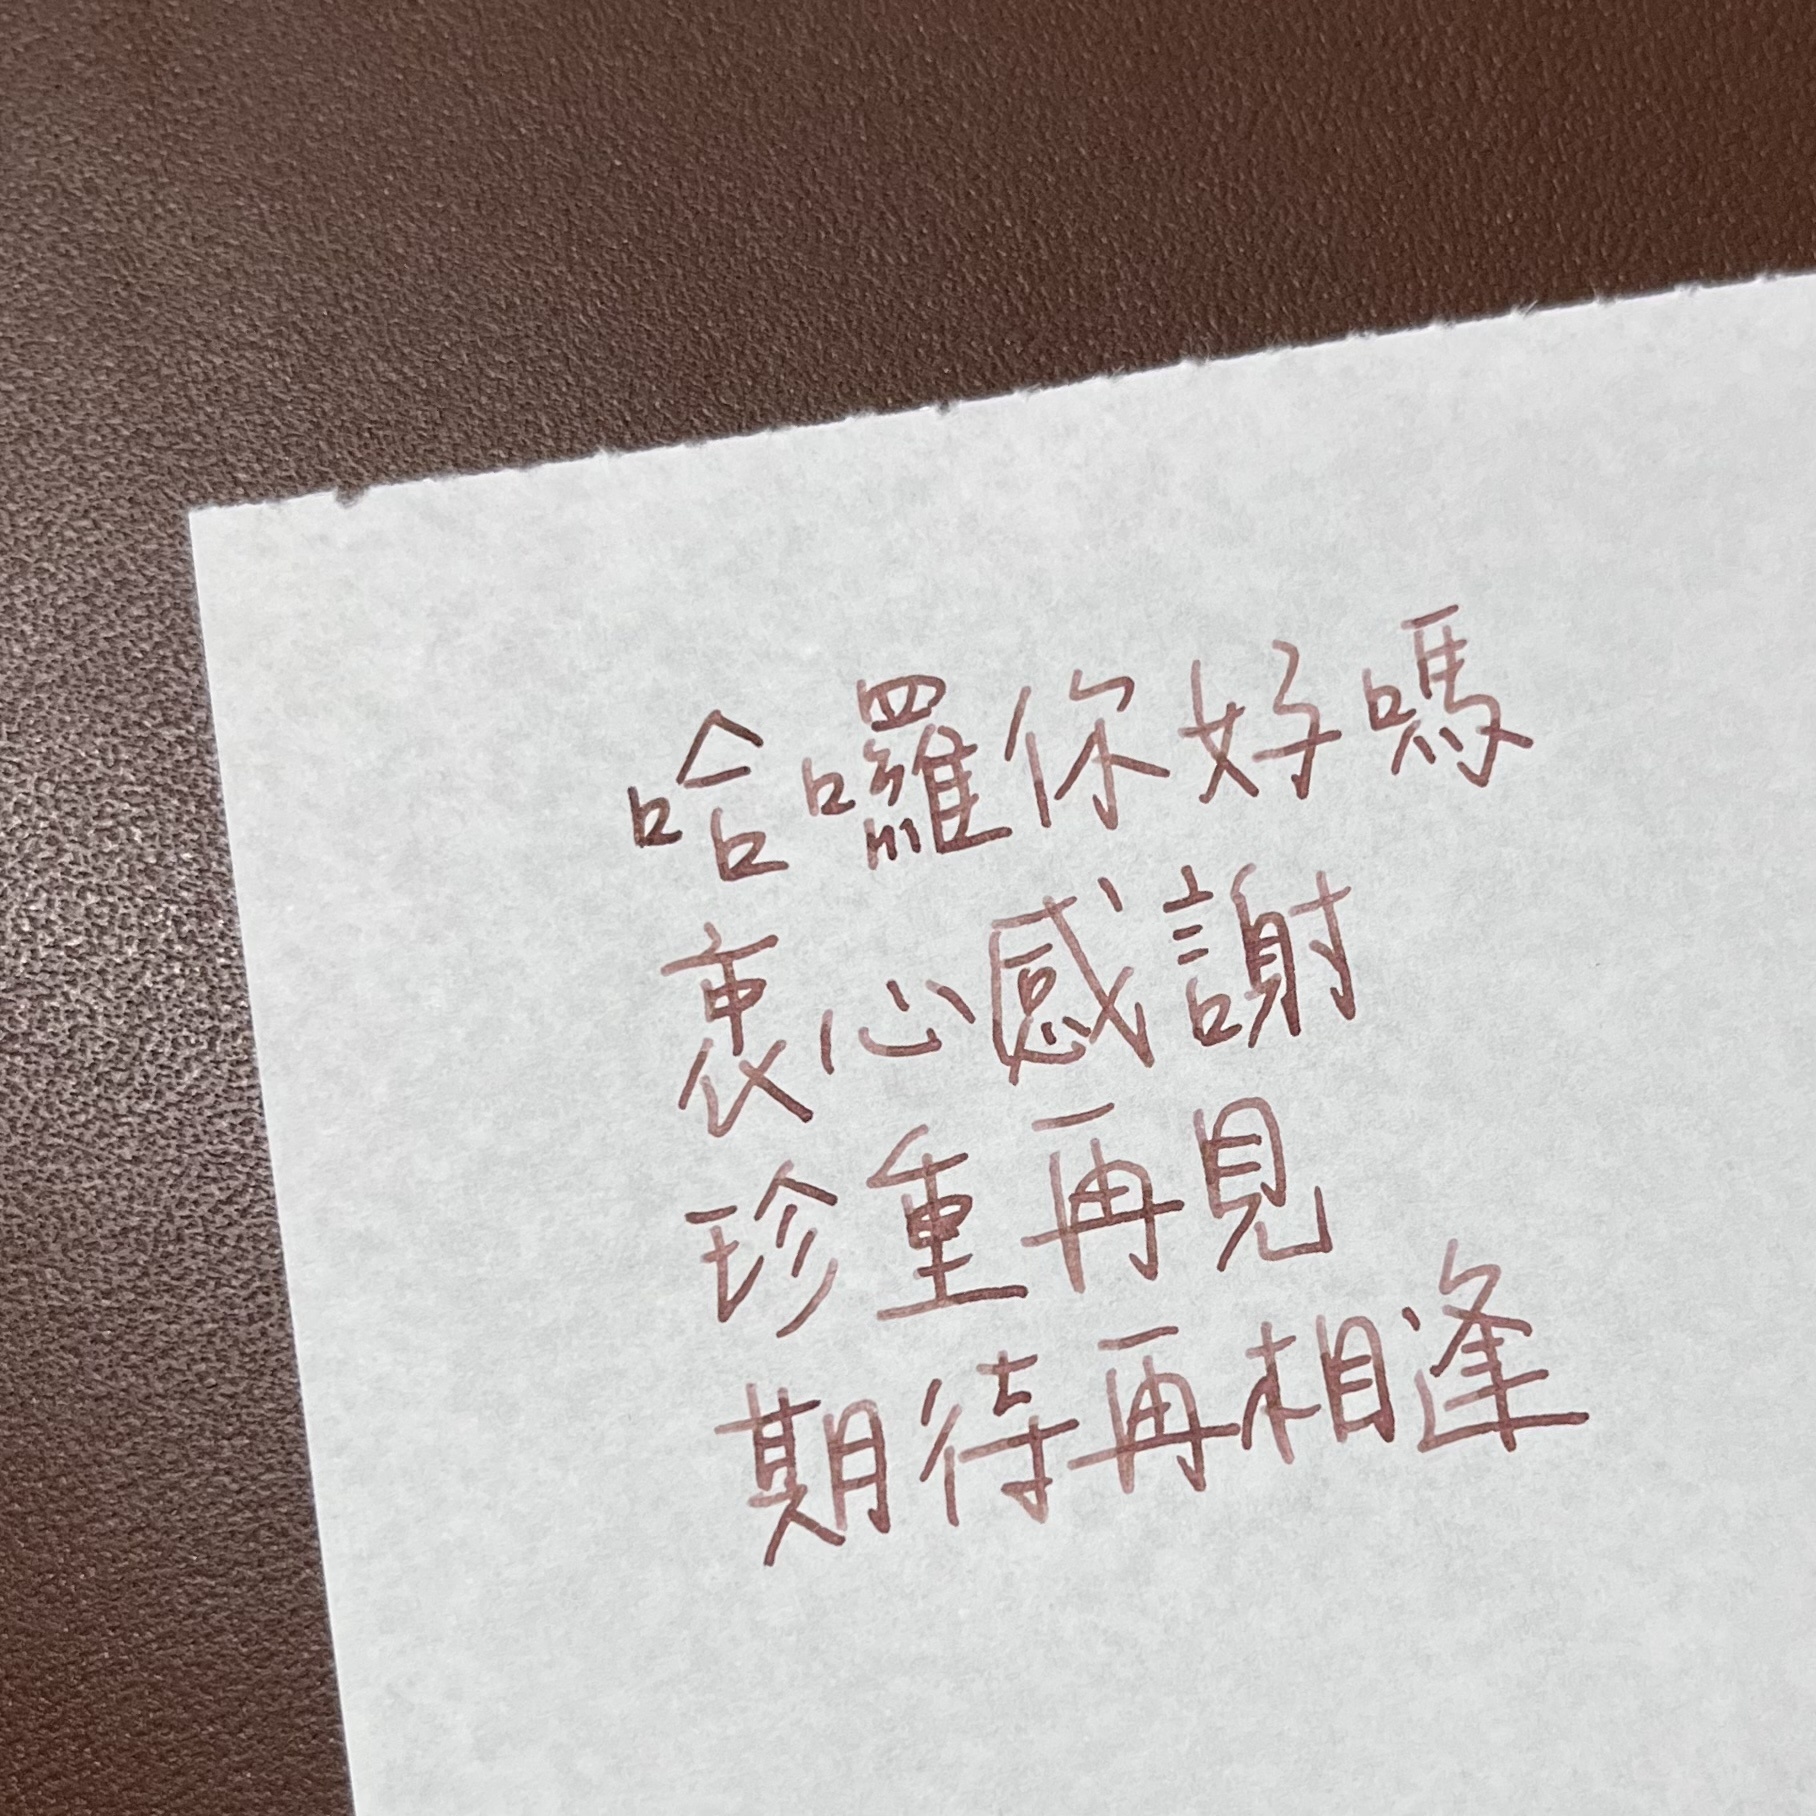 哈囉你好嗎
衷心感謝
珍重再見
期待再相逢